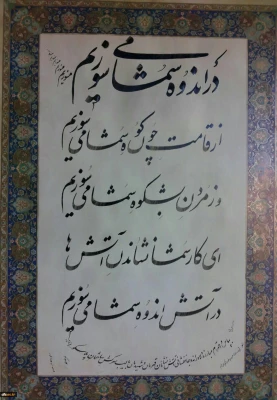 در اندوه شما می سوزیم
از قامت چون کوه شما می سوزیم
وز مردن بشکوه شما می سوزیم
ای کار شما نشاندن آتش ها
در آتش اندوه شما می سوزیم